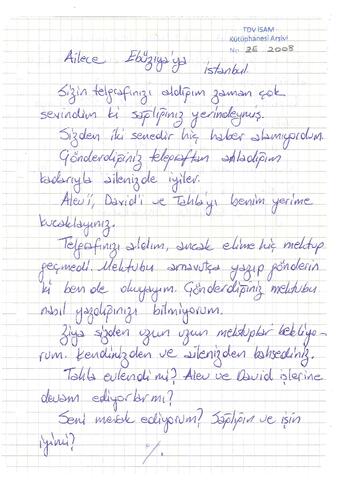 TDV İSAM
Kütüphanesi Arşivi
No 2E 2008
Ailece Ebüziya'ya
İstanbul
Sizin telgrafınızı aldığım zaman çok
sevindim ki sağlığınız yerindeymiş.
Sizden iki senedir hiç haber alamıyordum.
Gönderdiğiniz telgraftan anladığım
kadarıyla ailenizde iyiler.
Alev'i, David'i ve Talha'yı benim yerime
kucaklayınız.
Telgrafınızı aldım, ancak elime hiç mektup
geçmedi. Mektubu arnavutça yazıp gönderin
ki ben de okuyayım. Gönderdiğiniz mektubu
nasıl yazdığınızı bilmiyorum.
Ziya sizden uzun uzun mektuplar bekliyo-
rum. Kendinizden ve ailenizden bahsediniz.
Talha evlendi mi? Alev ve David işlerine
devam ediyorlar mı?
Seni merak ediyorum? Sağlığın ve işin
iyimi?
./.